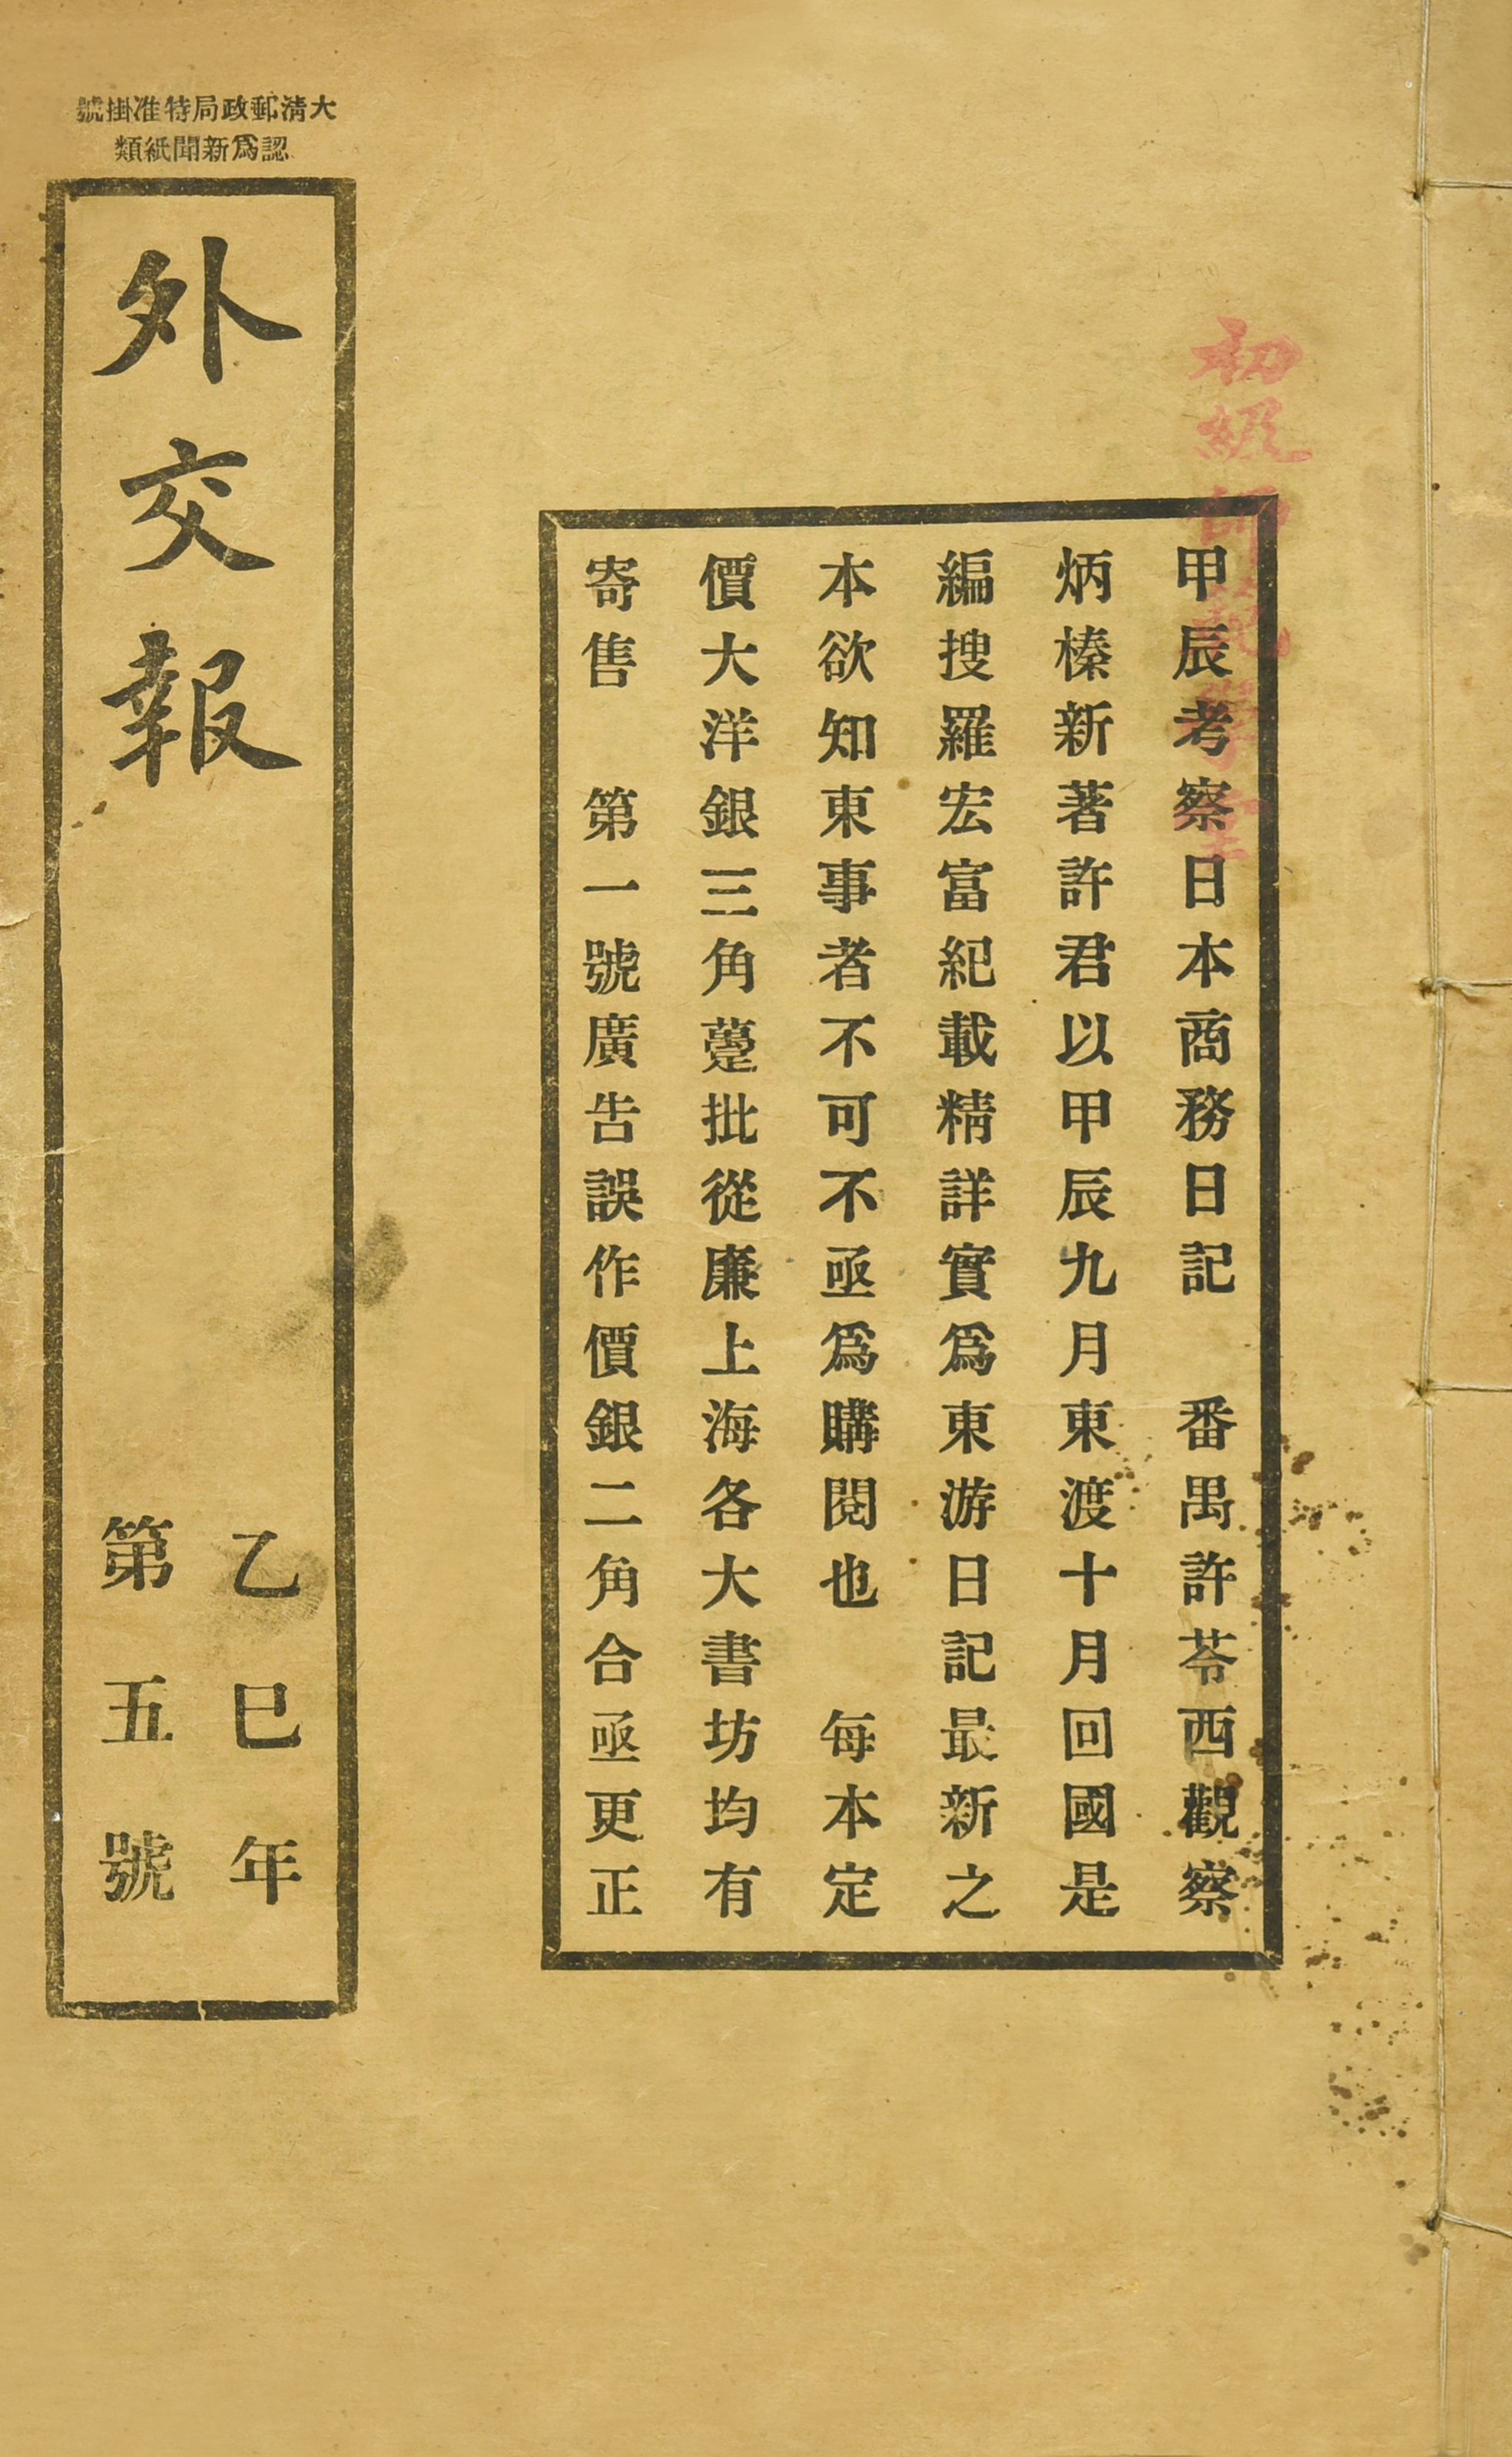 大清郵政局特准掛號
認爲新聞紙類
外交報
乙巳年
第五號
初級師範學堂
甲辰考察日本商務日記　番禺許苓西觀察
炳榛新著許君以甲辰九月東渡十月回國是
編搜羅宏富紀載精詳實爲東游日記最新之
本欲知東事者不可不亟爲購閱也　每本定
價大洋銀三角躉批從廉上海各大書坊均有
寄售　第一號廣告誤作價銀二角合亟更正